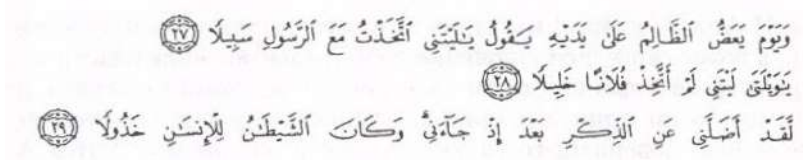 وَيَوْمَ يَعَضُّ ٱلظَّالِمُ عَلَىٰ يَدَيْهِ يَقُولُ يَٰلَيْتَنِي ٱتَّخَذْتُ مَعَ ٱلرَّسُولِ سَبِيلًا ٢٧
يَٰوَيْلَتَىٰ لَيْتَنِي لَمْ أَتَّخِذْ فُلَانًا خَلِيلًا ٢٨
لَّقَدْ أَضَلَّنِي عَنِ ٱلذِّكْرِ بَعْدَ إِذْ جَآءَنِي ۗ وَكَانَ ٱلشَّيْطَٰنُ لِلْإِنسَٰنِ خَذُولًا ٢٩